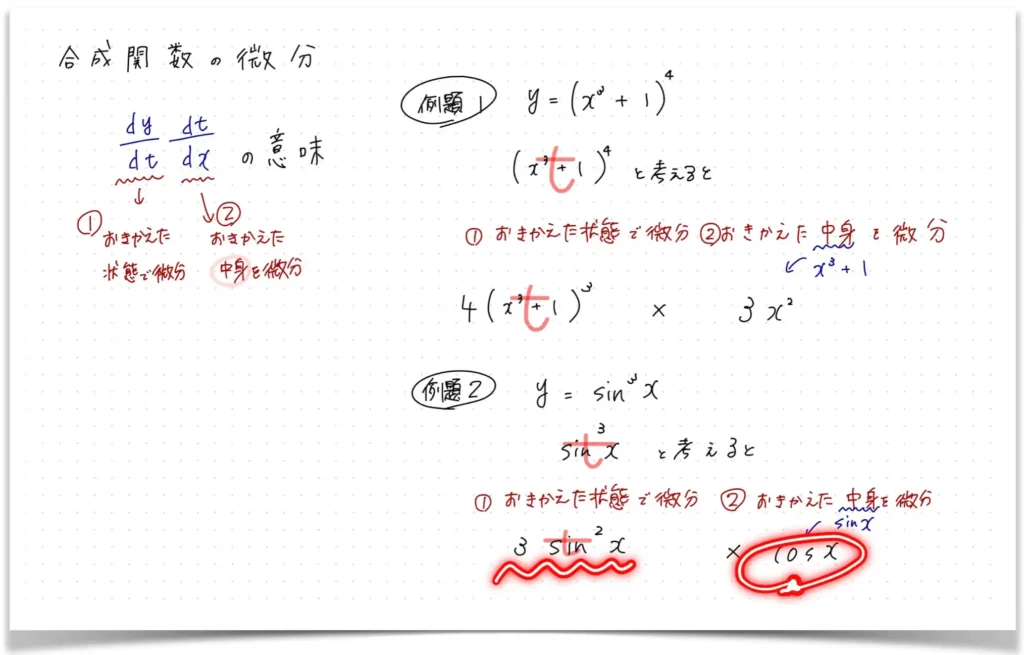 合成関数の微分
dy/dt dt/dx の意味
① おきかえた状態で微分
② おきかえた中身を微分
例題1 y = (x³ + 1)⁴
(x³ + 1)⁴ と考えると
t
① おきかえた状態で微分 ② おきかえた中身を微分
x³ + 1
4(x³ + 1)³ × 3x²
t
例題2 y = sin³x
sin³x と考えると
t
① おきかえた状態で微分 ② おきかえた中身を微分
sinx
3 sin²x × cosx
t